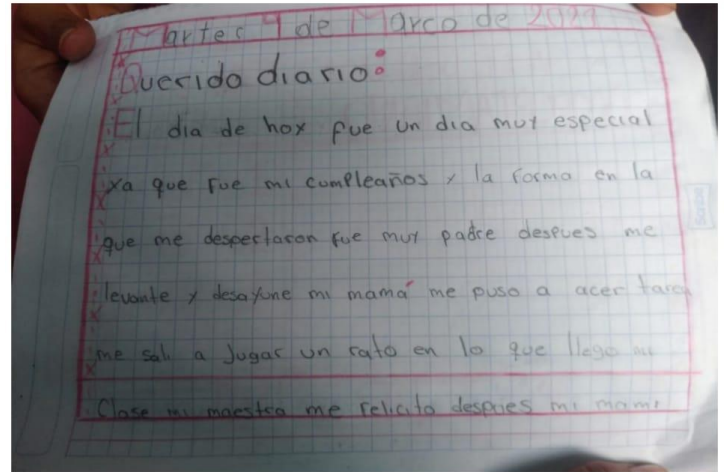 Martes 9 de Março de 2021
Querido diario:
El dia de hoy fue un dia muy especial
ya que fue mi cumpleaños y la forma en la
que me despertaron fue muy padre despues me
levante y desayune mi mamá me puso a acer tarea
me sali a Jugar un rato en lo que llego mi
Clase mi maestra me felicito despues mi mami